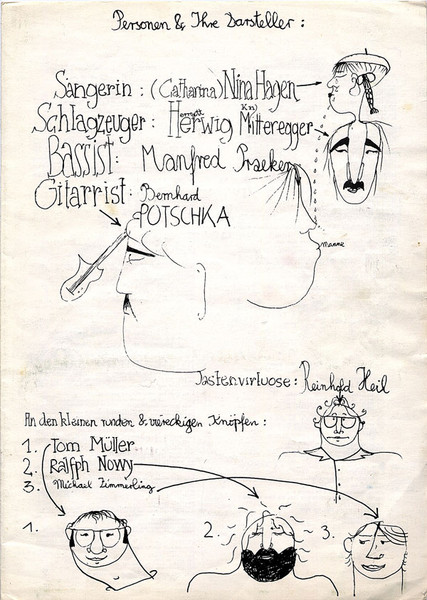 Personen & Ihre Darsteller:
Sängerin: (Catharina) Nina Hagen
Schlagzeuger: Herwig Mitteregger
Bassist: Manfred Praeker
Gitarrist: Bernhard
POTSCHKA
manne
Tastenvirtuose: Reinhold Heil
An den kleinen runden & viereckigen Knöpfen:
1. Tom Müller
2. Ralfph Nowy
3. Michael Zimmerling
1.
2.
3.